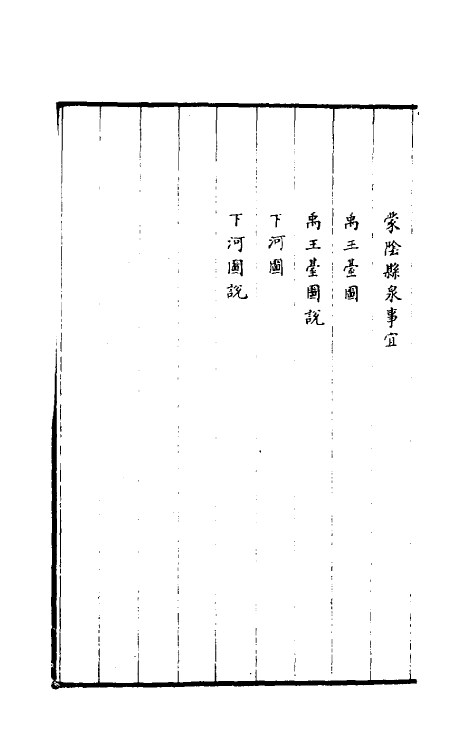 蒙陰縣泉事宜
禹王臺圖
禹王臺圖說
下河圖
下河圖說